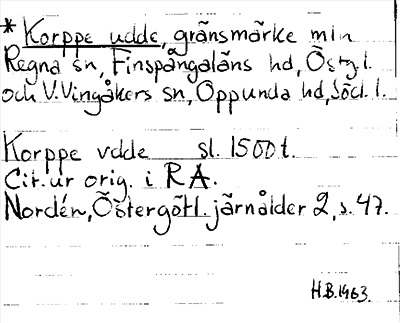 * Korppe udde, gränsmärke m n
Regna sn, Finspångaläns hd, Östg. l.
och V. Vingåkers sn, Oppunda hd, Södl. l.
Korppe vdde sl. 1500 t.
Cit. ur orig. i RA.
Nordén, Östergötl. järnålder 2, s. 47.
H.B. 1963.